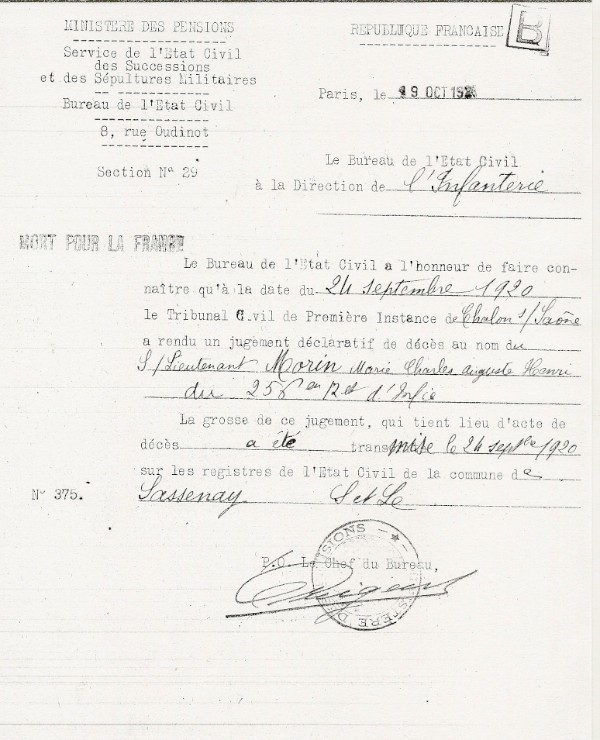 MINISTERE DES PENSIONS
Service de l'Etat Civil
des Successions
et des Sépultures Militaires
Bureau de l'Etat Civil
8, rue Oudinot
Section N° 29
REPUBLIQUE FRANCAISE
B
Paris, le 19 OCT 192
Le Bureau de l'Etat Civil
à la Direction de l'Infanterie
MORT POUR LA FRANCE
Le Bureau de l'Etat Civil a l'honneur de faire con-
naître qu'à la date du 24 septembre 1920
le Tribunal Civil de Première Instance de Chalon s/Saône
a rendu un jugement déclaratif de décès au nom du
S/Lieutenant Morin Marie Charles Auguste Henri
du 256 en Rt d'Infie
La grosse de ce jugement, qui tient lieu d'acte de
décès a été transmise le 24 septbre 1920
sur les registres de l'Etat Civil de la commune de
N° 375. Sassenay S et Le
P.O. Le Chef du Bureau,
MINISTERE DES PENSIONS